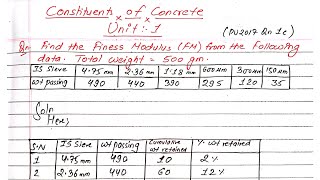 Constituent of Concrete
Unit:-1
(PU2017 Qn 1c)
Qn: Find the Finess Modulus (FM) from the following
data. Total weight = 500 gm.
IS Sieve 4.75 mm 2.36 mm 1.18 mm 600 μm 300 μm 150 μm
wt passing 490 440 390 295 120 35
Soln
Here,
S.N IS sieve wt passing Cumulative wt retained % wt retained
1 4.75 mm 490 10 2%
2 2.36 mm 440 60 12%